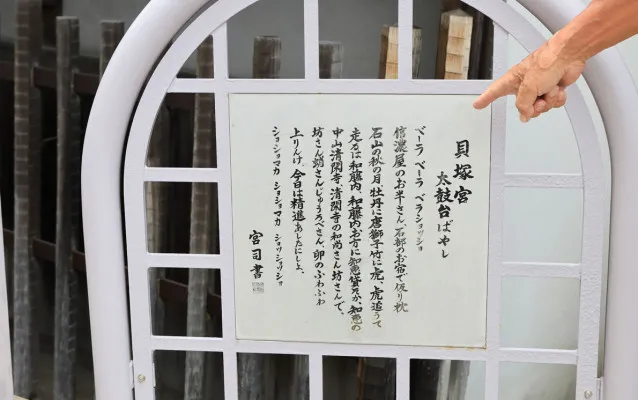 貝塚宮
太鼓台ばやし
ベーラ ベーラ ベラショッショ
信濃屋のお半さん、石部のお宿で仮り枕
石山の秋の月、牡丹に唐獅子竹に虎、虎追うて
走るは和藤内、和藤内お方に知恵貸そか、知恵の
中山清閑寺、清閑寺の和尚さん坊さんで、
坊さん蛸さんじゅうろべさん、卯のふわふわ
上りんけ、今日は精進あしたにしよ、
ショショマカ ショショマカ ショッショッショ
宮司書